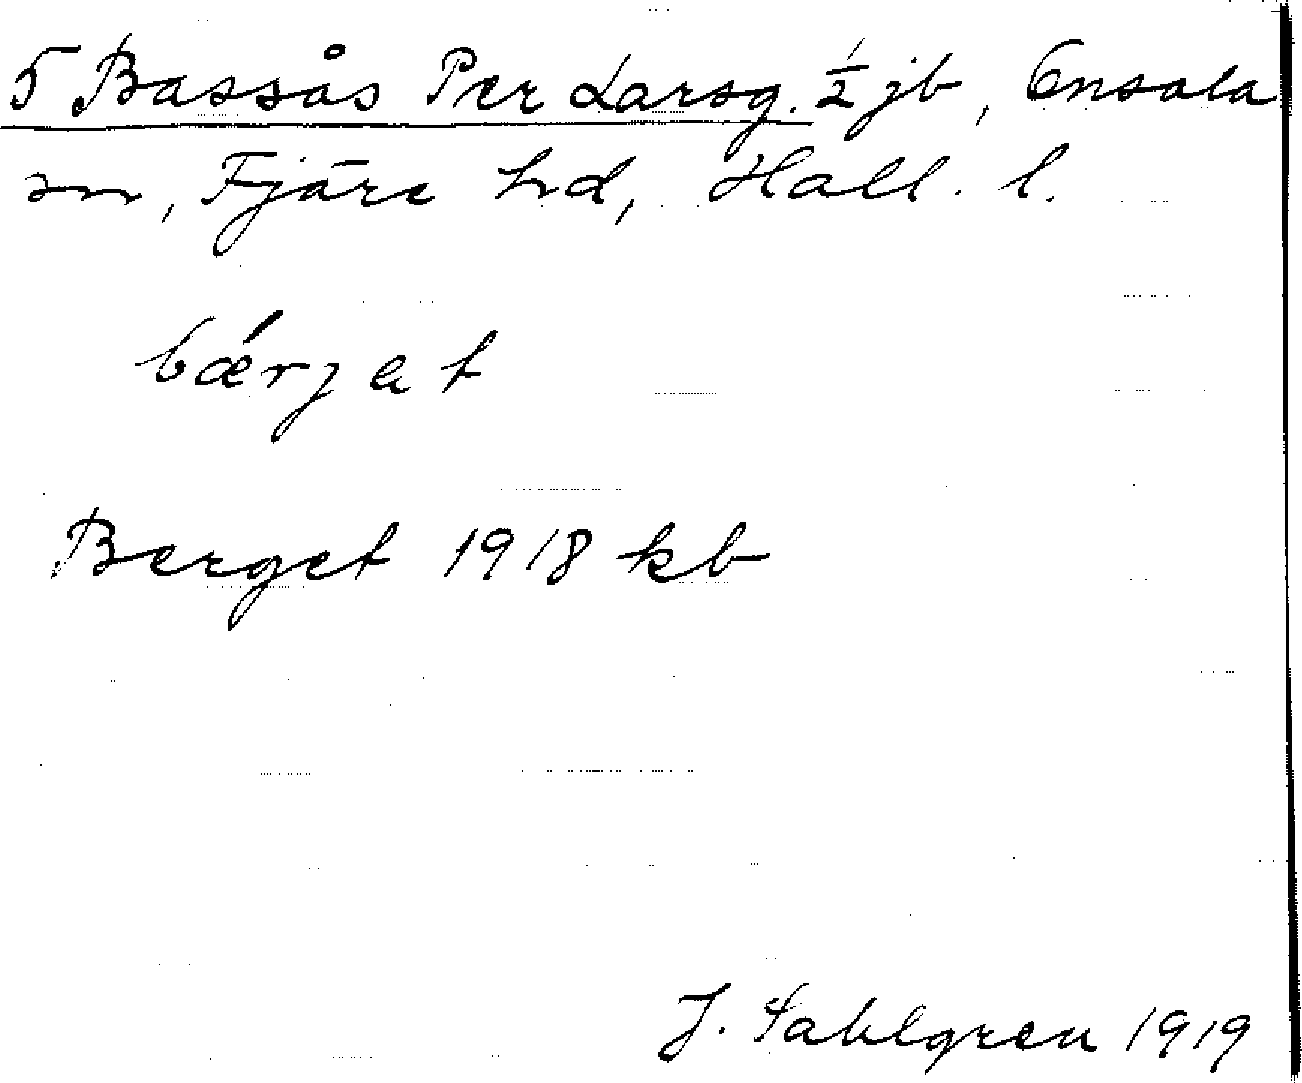 5 Bassås Per Larsg. ½ jb, Onsala
sn, Fjäre hd, Hall. l.
bǽrjat
Berget 1918 kb
J. Sahlgren 1919